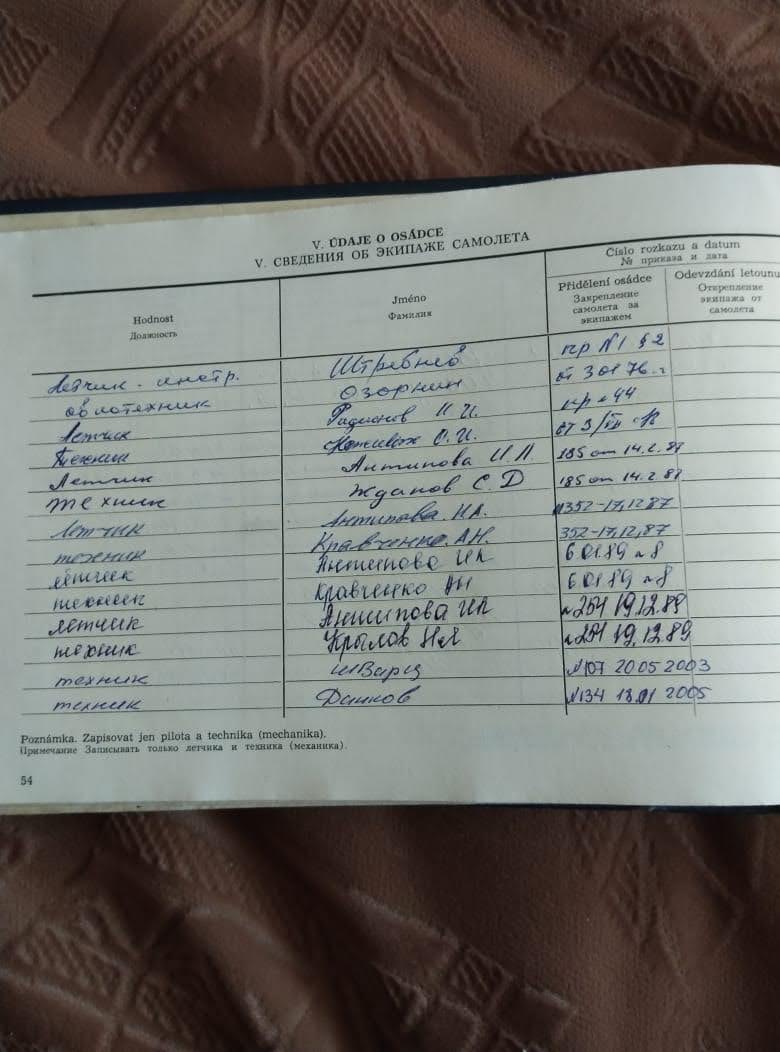 V. ÚDAJE O OSÁDCE
V. СВЕДЕНИЯ ОБ ЭКИПАЖЕ САМОЛЕТА
Hodnost
Должность
Jméno
Фамилия
Číslo rozkazu a datum
№ приказа и дата
Přidělení osádce
Закрепление самолета за экипажем
Odevzdání letounu
Открепление экипажа от самолета
Летчик-инстр. Штребнев пр №1 §2
авиотехник Озорнин от 3 01 76 г
Летчик Радионов И. И. пр 44
Техник О. И.
Летчик Антипова И Л. 185 от 14.2.87
техник Жданов С. Д 185 от 14.2 87
летчик Антипова. ИЛ. 352-17,12 87
техник Кравченко. А.Н. 352-17,12,87
летчик Антипова ИЛ 6 01 89 №8
техник Кравченко АН 6 01 89 №8
летчик Антипова ИЛ №254 19.12.89
техник Крылов №254 19.12.89
техник Шварц №107 20 05 2003
техник №134 18.01 2005
Poznámka. Zapisovat jen pilota a technika (mechanika).
Примечание Записывать только летчика и техника (механика).
54